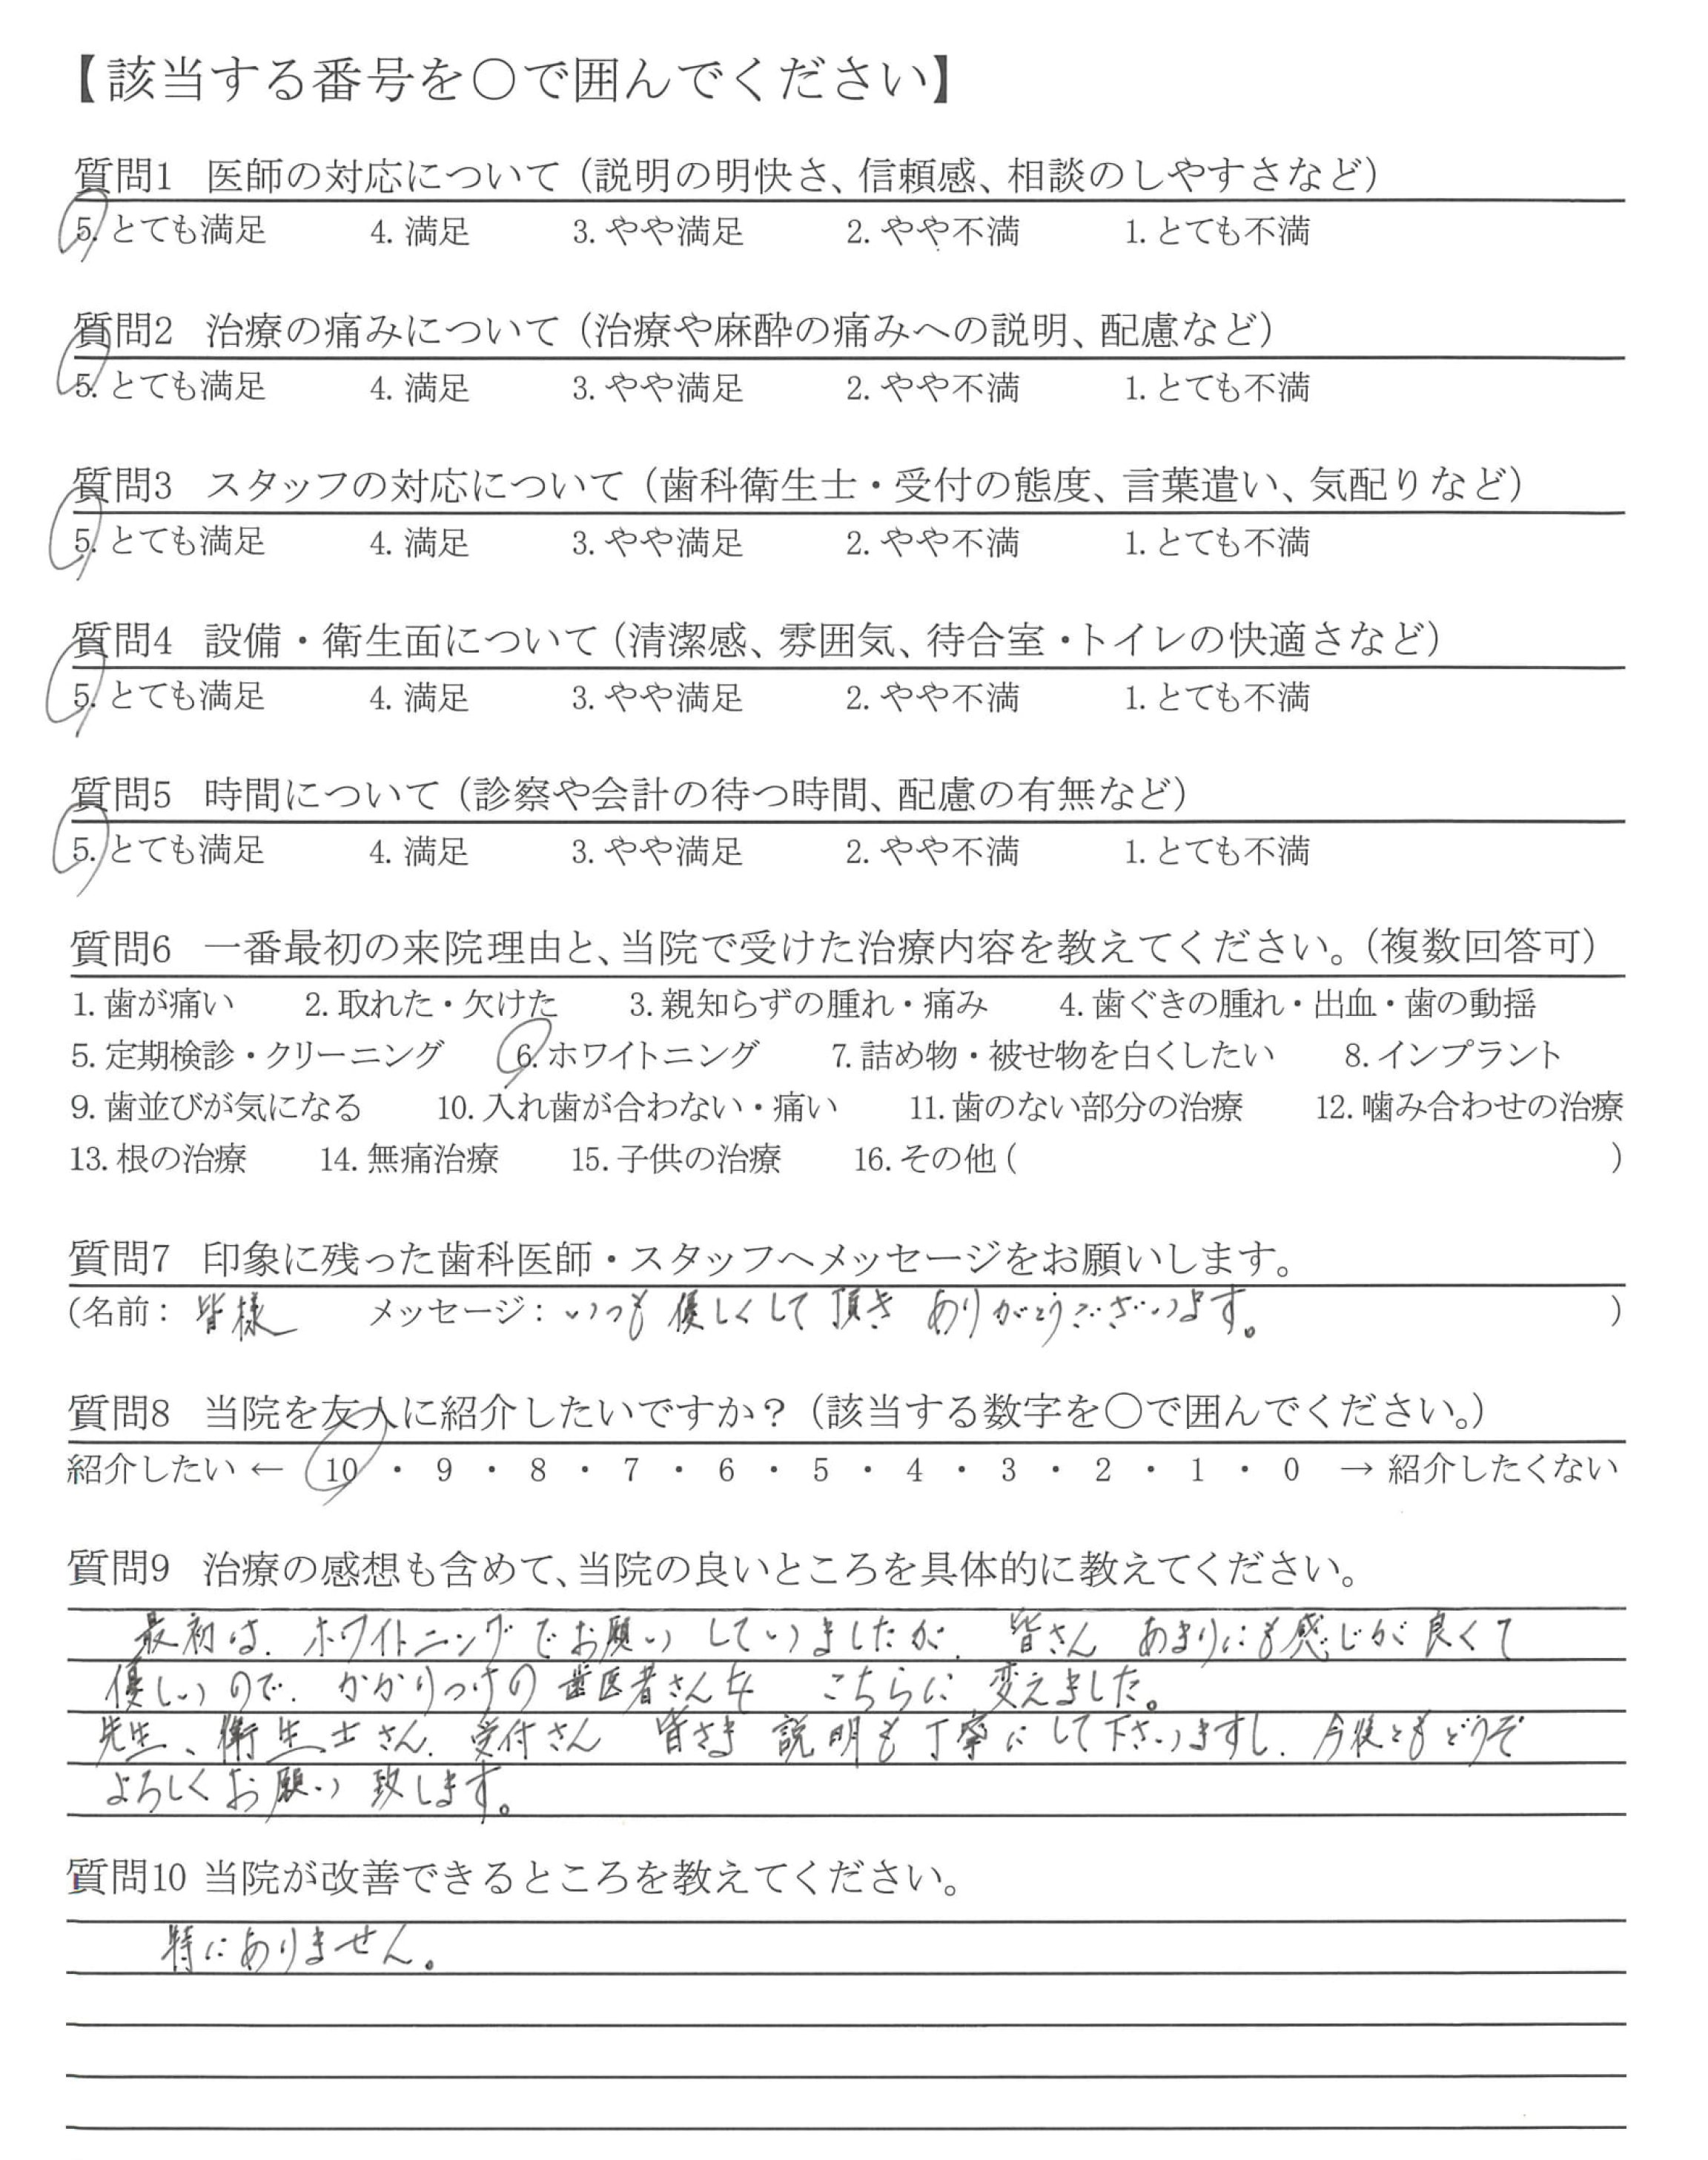 【該当する番号を○で囲んでください】
質問1 医師の対応について（説明の明快さ、信頼感、相談のしやすさなど）
5. とても満足 4. 満足 3. やや満足 2. やや不満 1. とても不満
質問2 治療の痛みについて（治療や麻酔の痛みへの説明、配慮など）
5. とても満足 4. 満足 3. やや満足 2. やや不満 1. とても不満
質問3 スタッフの対応について（歯科衛生士・受付の態度、言葉遣い、気配りなど）
5. とても満足 4. 満足 3. やや満足 2. やや不満 1. とても不満
質問4 設備・衛生面について（清潔感、雰囲気、待合室・トイレの快適さなど）
5. とても満足 4. 満足 3. やや満足 2. やや不満 1. とても不満
質問5 時間について（診察や会計の待つ時間、配慮の有無など）
5. とても満足 4. 満足 3. やや満足 2. やや不満 1. とても不満
質問6 一番最初の来院理由と、当院で受けた治療内容を教えてください。（複数回答可）
1. 歯が痛い 2. 取れた・欠けた 3. 親知らずの腫れ・痛み 4. 歯ぐきの腫れ・出血・歯の動揺
5. 定期検診・クリーニング 6. ホワイトニング 7. 詰め物・被せ物を白くしたい 8. インプラント
9. 歯並びが気になる 10. 入れ歯が合わない・痛い 11. 歯のない部分の治療 12. 噛み合わせの治療
13. 根の治療 14. 無痛治療 15. 子供の治療 16. その他（ ）
質問7 印象に残った歯科医師・スタッフへメッセージをお願いします。
（名前： 皆様 メッセージ： いつも優しくして頂き ありがとうございます。 ）
質問8 当院を友人に紹介したいですか？（該当する数字を○で囲んでください。）
紹介したい ← 10 ・ 9 ・ 8 ・ 7 ・ 6 ・ 5 ・ 4 ・ 3 ・ 2 ・ 1 ・ 0 → 紹介したくない
質問9 治療の感想も含めて、当院の良いところを具体的に教えてください。
最初は、ホワイトニングでお願いしていましたが、皆さん あまりにも感じが良くて
優しいので、かかりつけの歯医者さんを こちらに 変えました。
先生、衛生士さん、受付さん 皆さま 説明も丁寧にして下さいますし、今後ともどうぞ
よろしくお願い致します。
質問10 当院が改善できるところを教えてください。
特にありません。